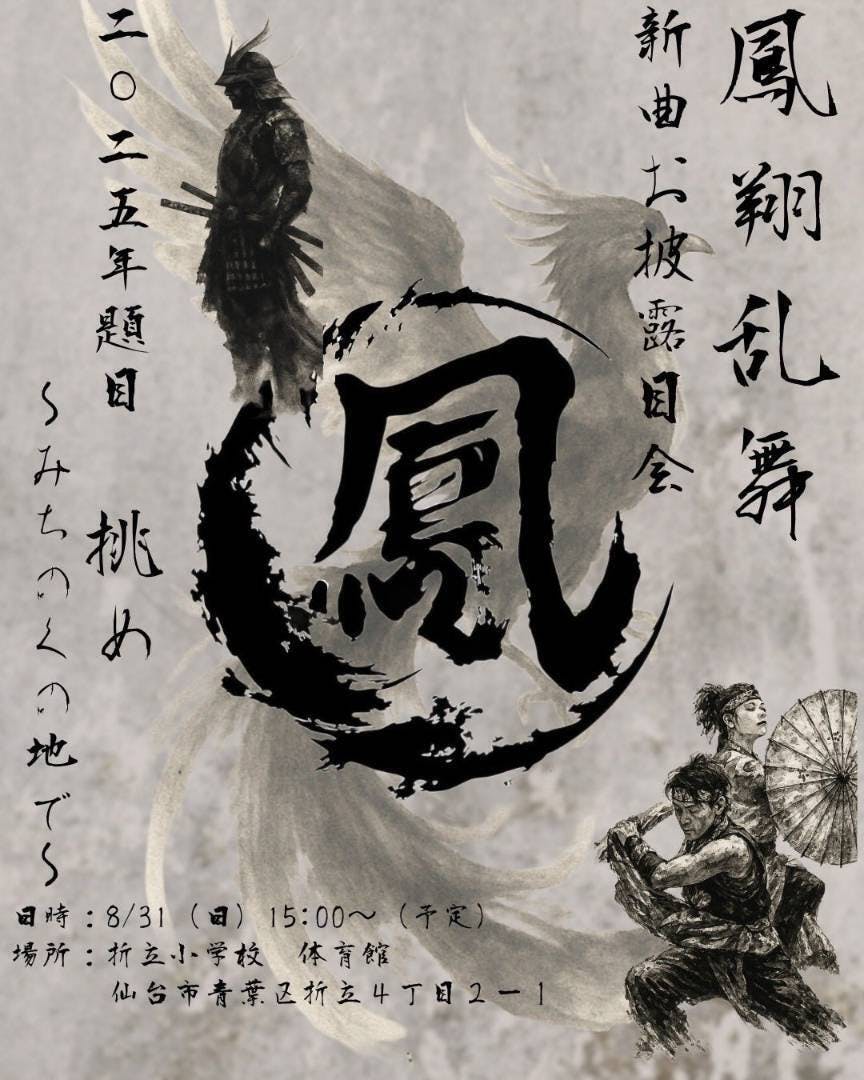 鳳翔乱舞
新曲お披露目会
二〇二五年題目 挑め
〜みちのくの地で〜
鳳
日時：8/31（日）15:00〜（予定）
場所：折立小学校 体育館
仙台市青葉区折立４丁目２ー１